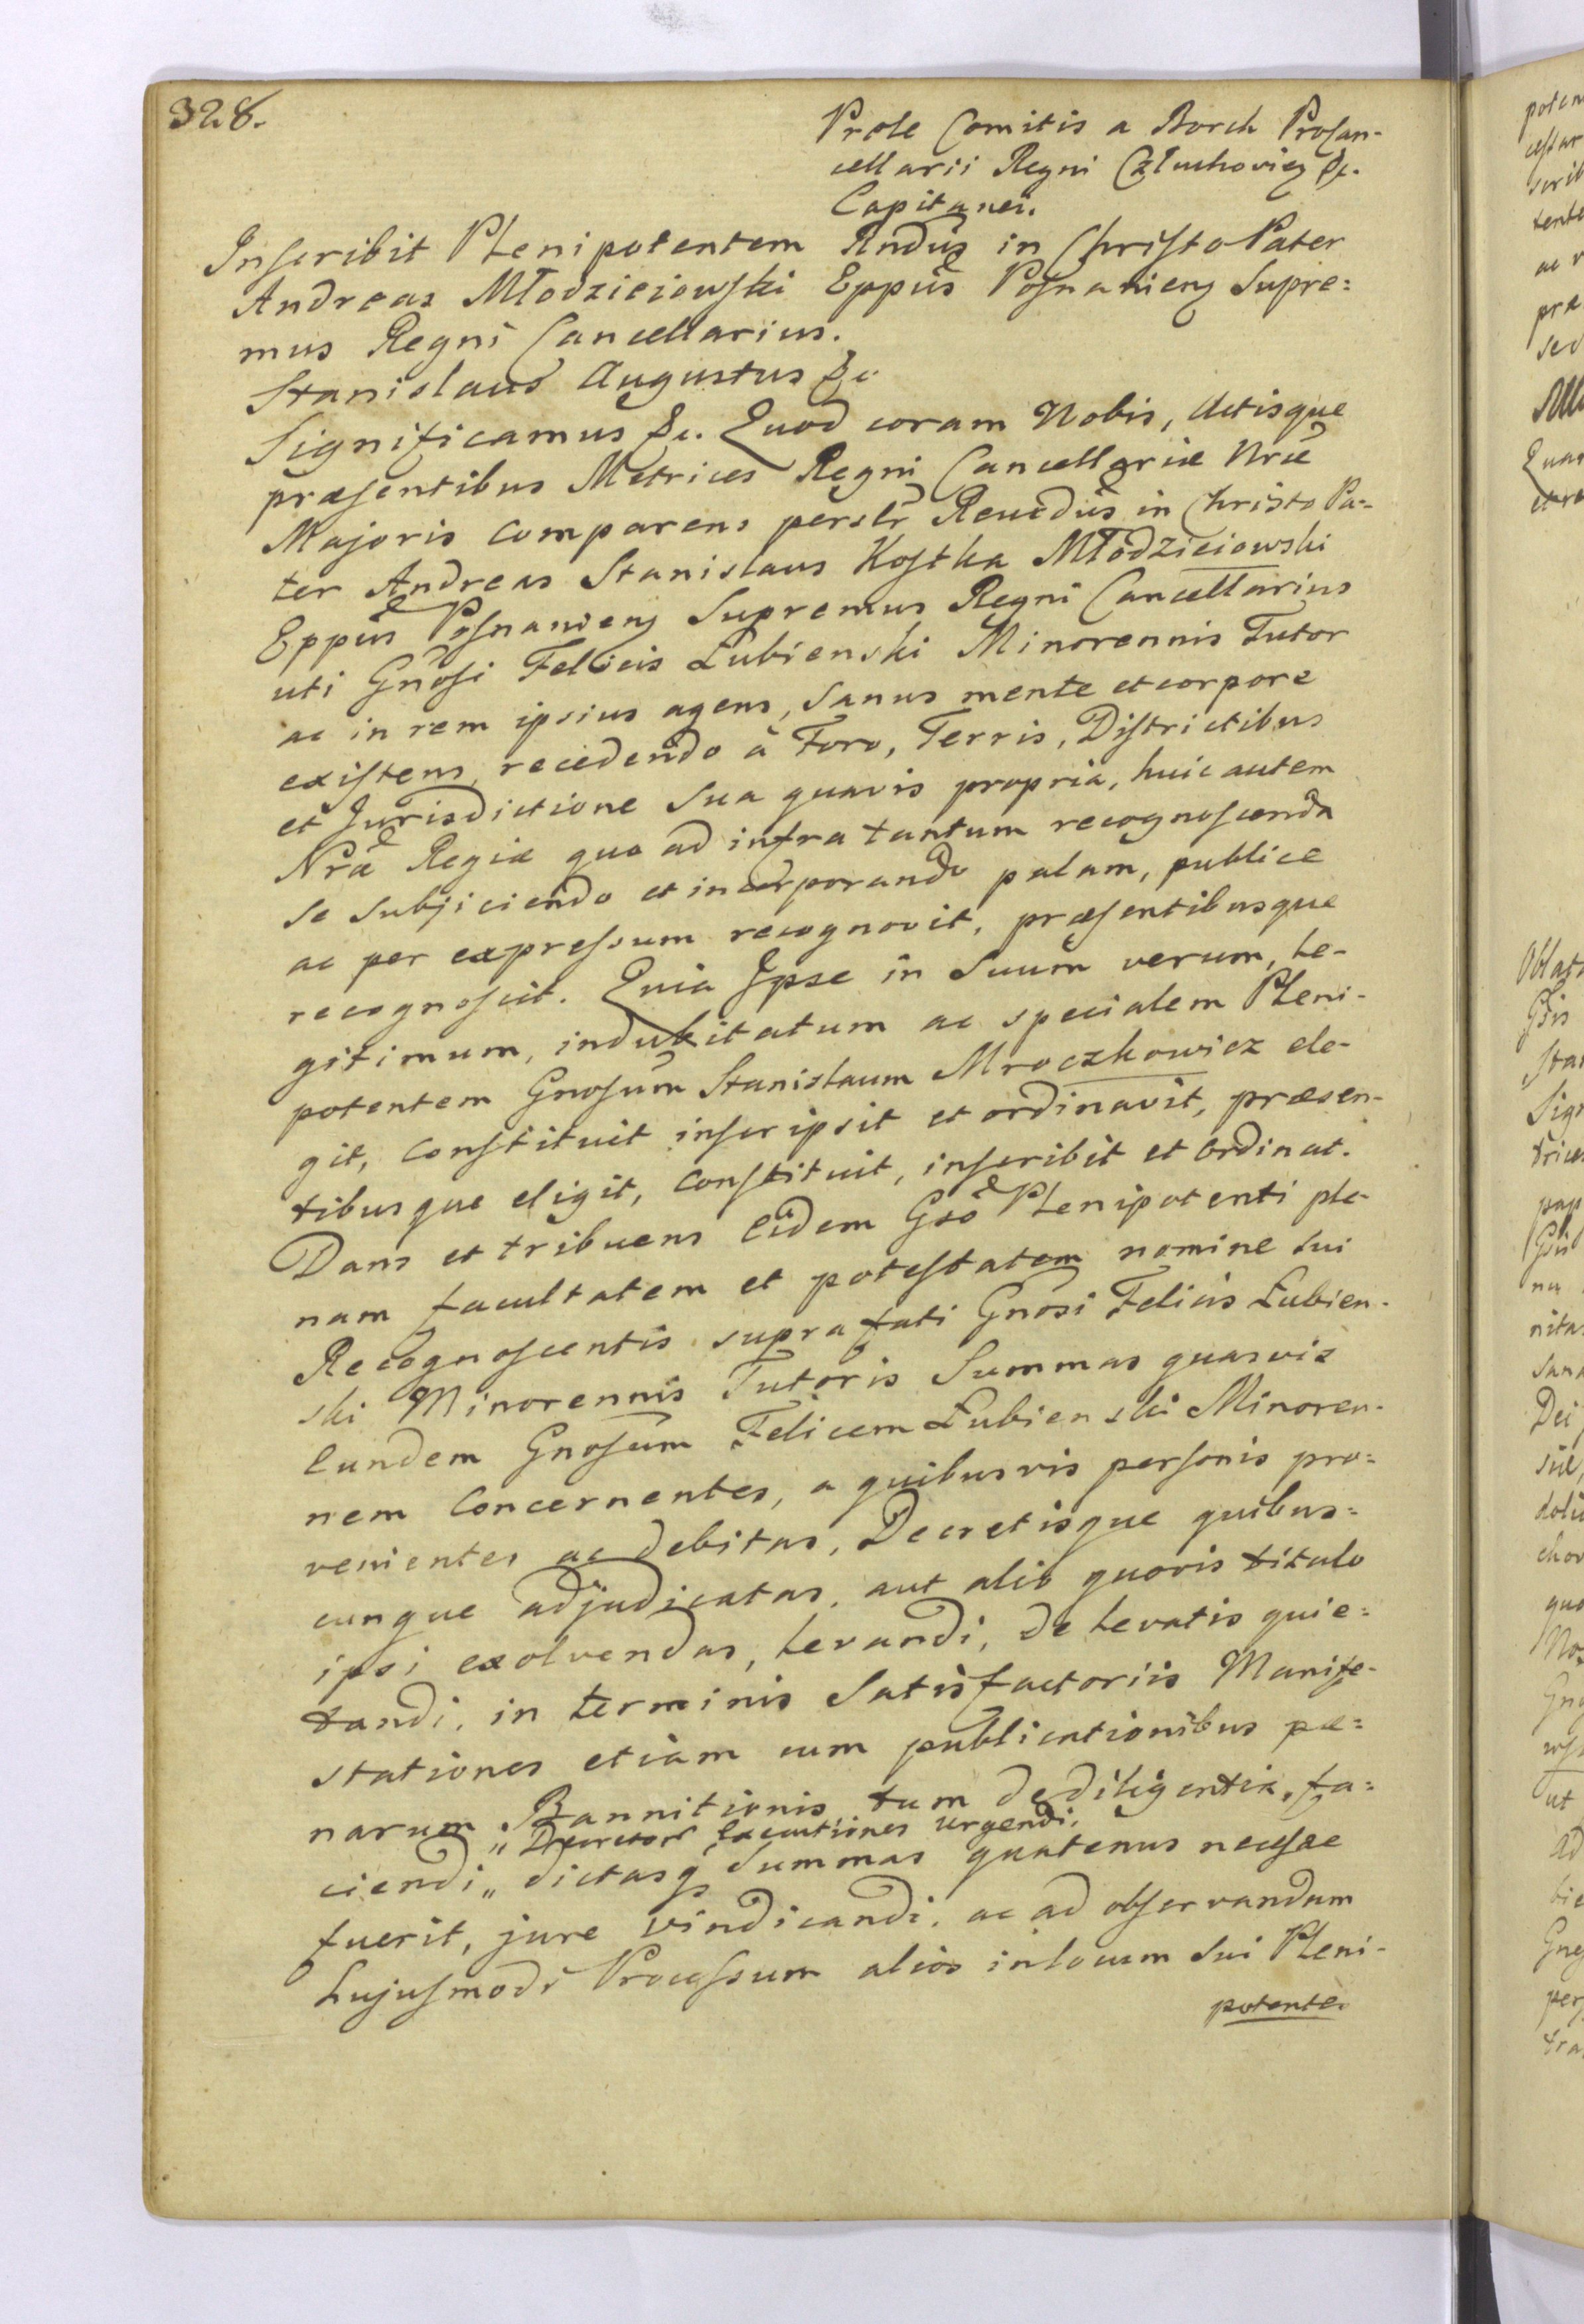 328.
Prole Comitis a Borch Procan-
cellarii Regni Człuchovien &c.
Capitanei.
Inscribit Plenipotentem Rndus in Christo Pater
Andreas Młodzieiowski Eppus Posnanien Supre=
mus Regni Cancellarius.
Stanislaus Augustus &c.
Significamus &c. Quod coram Nobis, Actisque
præsentibus Metrices Regni Cancellariæ Nræ
Majoris comparens perslr Reuedus in Christo Pa-
ter Andreas Stanislaus Kostka Młodzieiowski
Eppus Posnanien Supremus Regni Cancellarius
uti Gnosi Felicis Łubienski Minorennis Tutor
ac in rem ipsius agens, sanus mente et corpore
existens, recedendo à Foro, Terris, Districtibus
et Jurisdictione sua quavis propria, huic autem
Nræ Regiæ quo ad infra tantum recognoscenda
se subjiciendo et incorporando palam, publice
ac per expressum recognovit, præsentibusque
recognoscit. Quia Ipse in Suum verum, le-
gitimum, indubitatum ac specialem Pleni-
potentem Gnosum Stanislaum Mroczkowicz ele-
git, constituit inscripsit et ordinavit, præsen-
tibusque eligit, constituit, inscribit et ordinat.
Dans et tribuens eidem Gso Plenipotenti ple-
nam facultatem et potestatem nomine sui
Recognoscentis supra fati Gnosi Felicis Łubien-
ski Minorennis Tutoris Summas quasvis
eundem Gnosum Felicem Łubienski Minoren-
nem concernentes, a quibusvis personis pro=
venientes ac debitas, Decretisque quibus=
cunque adjudicatas, aut alio quovis titulo
ipsi exolvendas, levandi, de levatis quie=
tandi, in terminis satisfactoriis Manife-
stationes etiam cum publicationibus pæ=
narum Bannitionis tum de diligentia, fa=
„ Decretor Executiones urgendi,
ciendi „ dictasq Summas quatenus necesse
fuerit, jure vindicandi, ac ad observandum
hujusmodi Processum alios in locum sui Pleni-
potente.